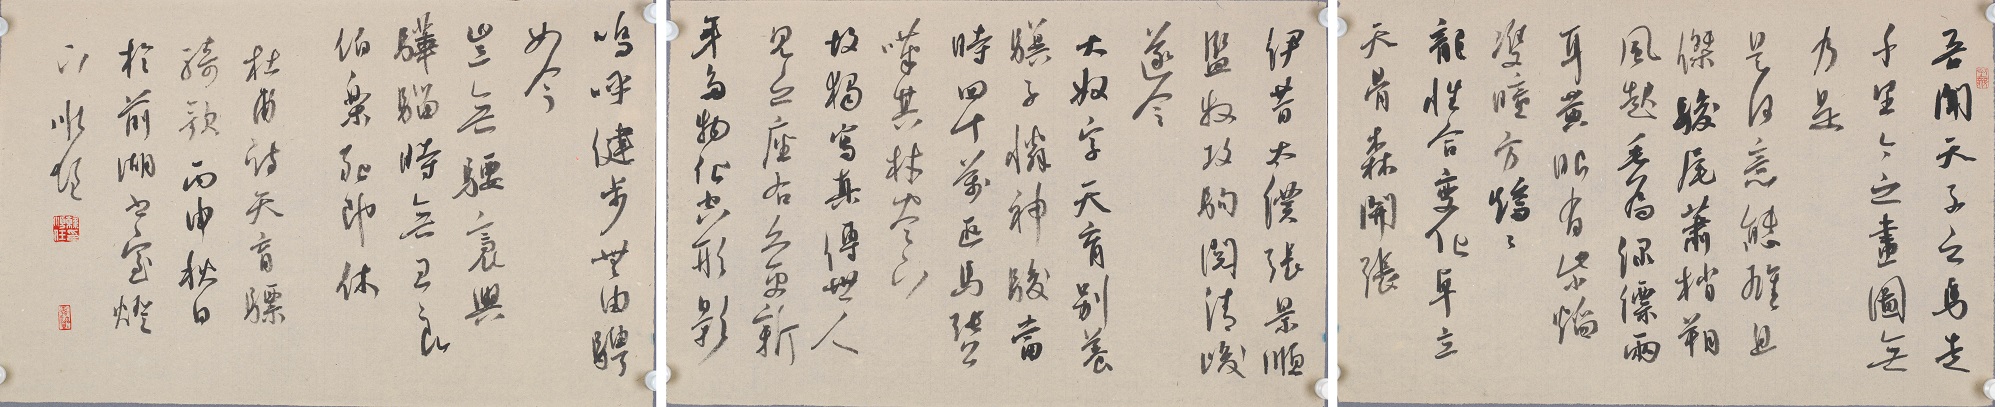 吾聞天子之馬走
千里今之畫圖無
乃是
是何意態雄且
傑駿尾蕭梢朔
風起毛為綠縹兩
耳黃眼有紫焰
雙瞳方矯〻
龍性合變化卓立
天骨森開張
伊昔太僕張景順
監牧攻駒閱清峻
遂令
大奴字天育別養
驥子憐神駿當
時四十萬匹馬張公
嘆其材盡下
故獨寫真傳世人
見之座右久更新
年多物化空形影
嗚呼健步無由騁
如今
豈無騕褭與
驊騮時無王良
伯樂死即休
杜甫詩天育驃
騎歌丙申秋日
於前湖書室燈
下